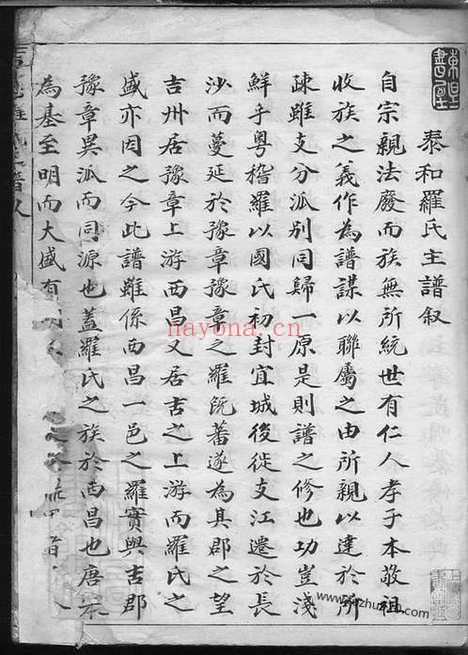 泰和羅氏主譜叙
自宗親法廢而族無所統世有仁人孝子本敬祖
收族之義作為譜諜以聯屬之由所親以達於所
疎雖支分派別同歸一原是則譜之修也功豈淺
鮮乎粵稽羅以國氏初封宜城後徙支江遷於長
沙而蔓延於豫章豫章之羅既蕃遂為其郡之望
吉州居豫章上游西昌又居吉之上游而羅氏之
盛亦因之今此譜雖係西昌一邑之羅實與吉郡
豫章異派而同源也蓋羅氏之族於西昌也唐宋
為基至明而大盛有
nayona.cn
www.nzhuhum.com